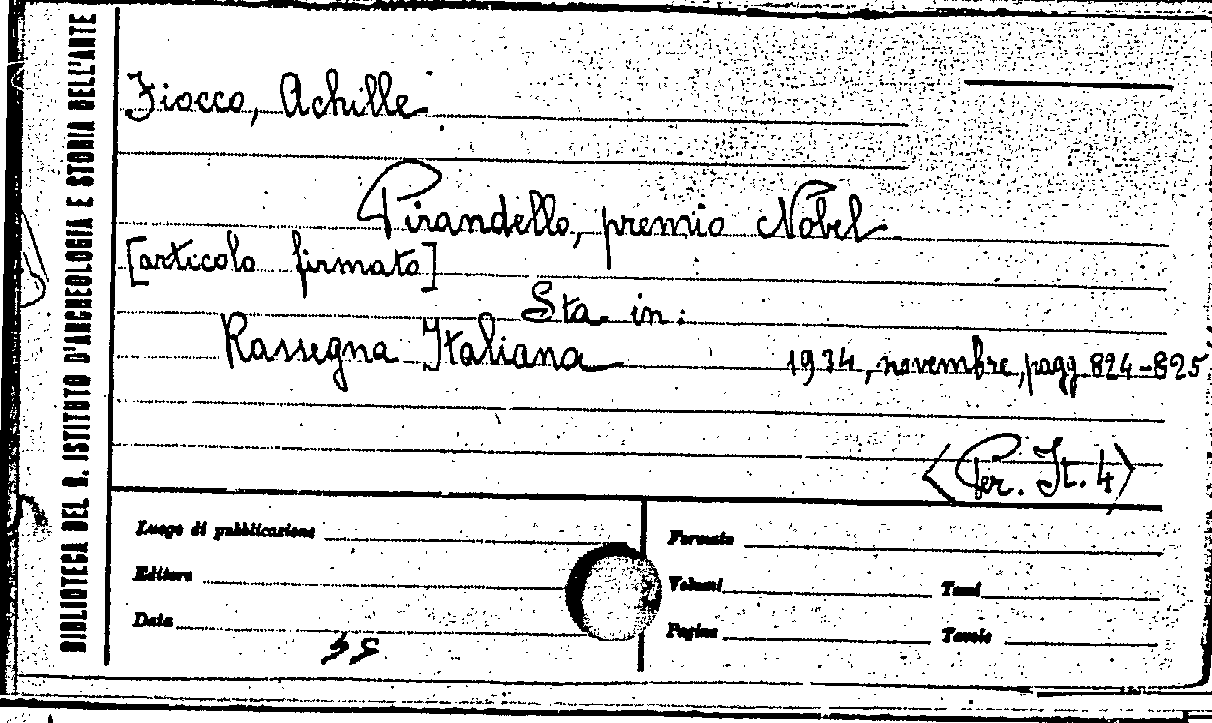 BIBLIOTECA DEL R. ISTITUTO D'ARCHEOLOGIA E STORIA DELL'ARTE
Fiocco, Achille
Pirandello, premio Nobel
[articolo firmato]
Sta in:
Rassegna Italiana 1934, novembre, pagg. 824-825
<Per. It. 4>
Luogo di pubblicazione
Formato
Editore
Volumi Tomi
Data
Pagine Tavole